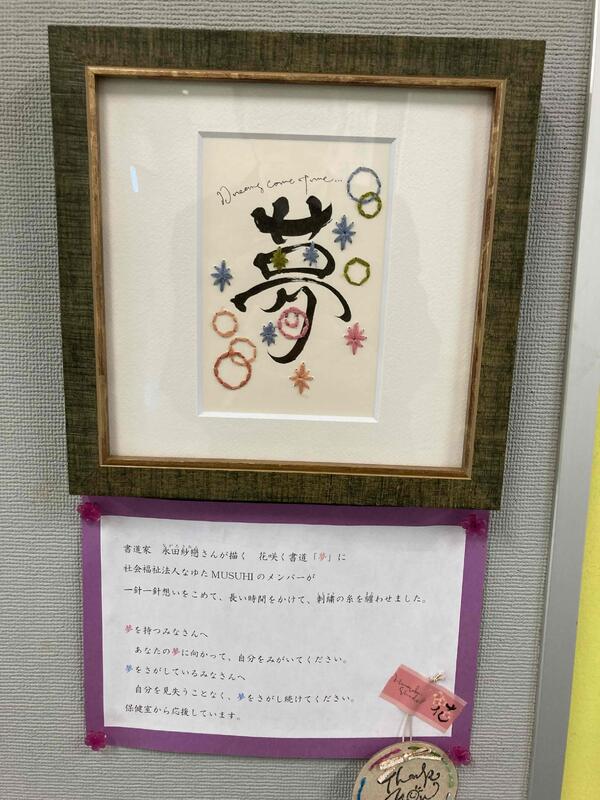 Dreams come true...
夢
書道家 永田紗戀さんが描く 花咲く書道「夢」に
社会福祉法人なゆた MUSUHI のメンバーが
一針一針想いをこめて、長い時間をかけて、刺繍の糸を纏わせました。
夢を持つみなさんへ
あなたの夢に向かって、自分をみがいてください。
夢をさがしているみなさんへ
自分を見失うことなく、夢をさがし続けてください。
保健室から応援しています。
花
Thank
you